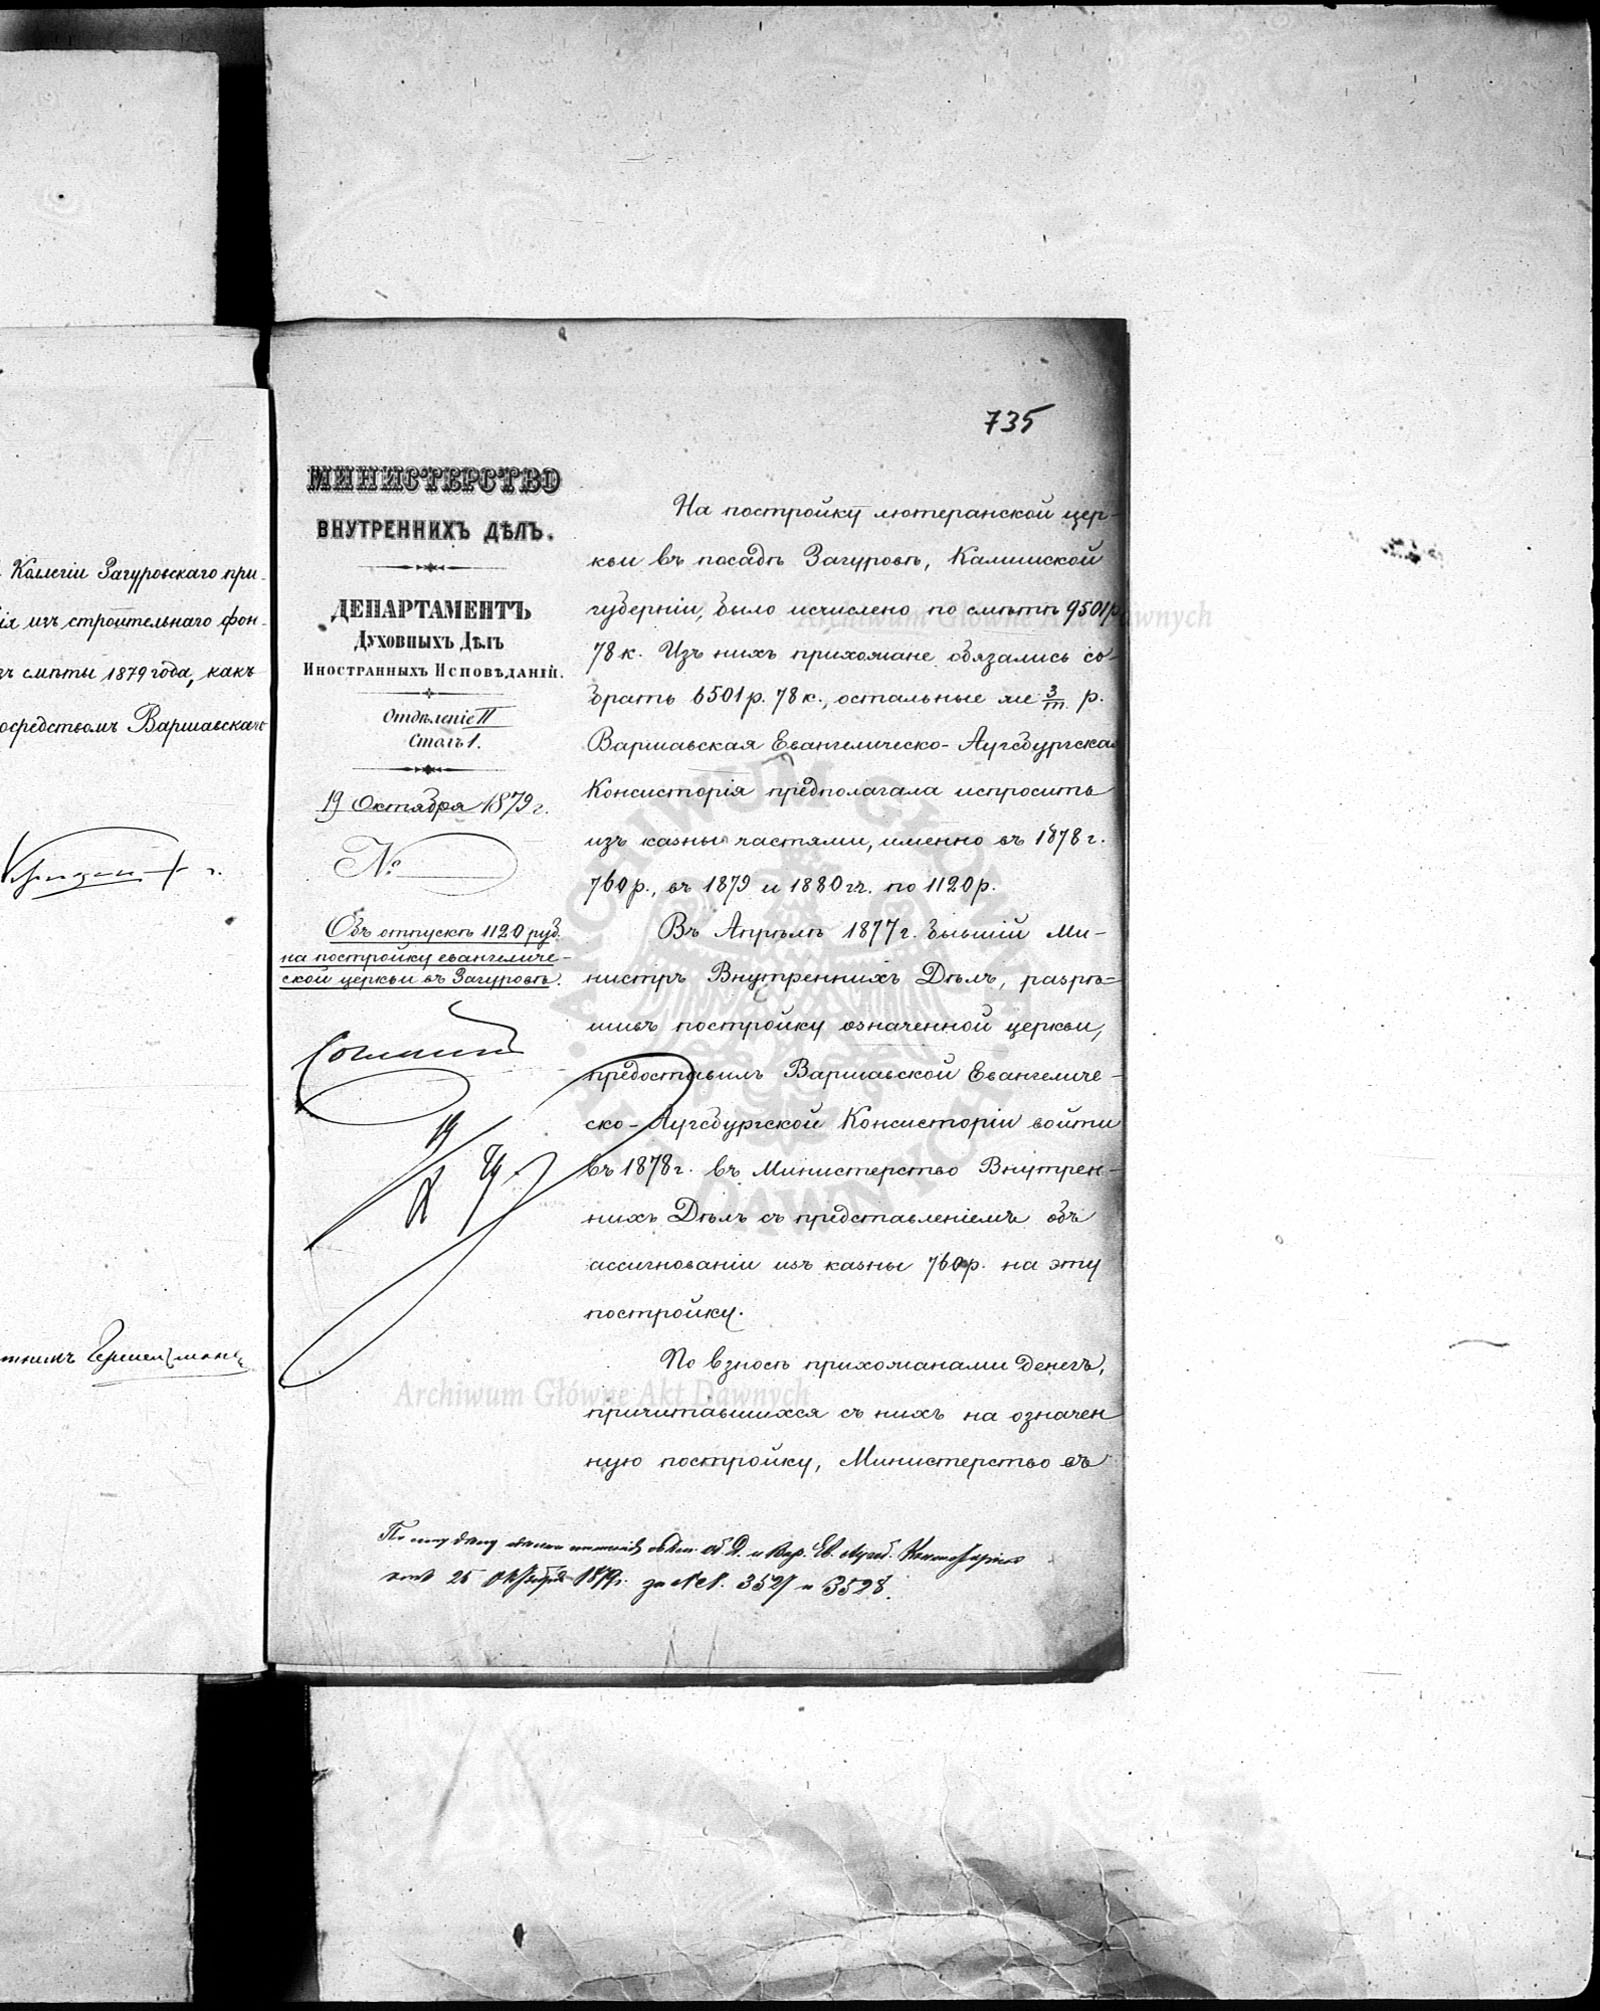 Коллегіи Загуровскаго при-
ія изъ строительнаго фон-
зъ смѣты 1879 года, какъ
осредствомъ Варшавскаго
735
МИНИСТЕРСТВО
ВНУТРЕННИХЪ ДѢЛЪ.
ДЕПАРТАМЕНТЪ
Духовныхъ Дѣлъ
Иностранныхъ Исповѣданій.
Отдѣленіе II
Столъ 1.
19 Октября 1879 г.
№
Объ отпускѣ 1120 руб.
на постройку евангеличе-
ской церкви въ Загуровѣ.
На постройку лютеранской цер-
кви въ посадѣ Загуровѣ, Калишской
губерніи, было исчислено по смѣтѣ 9501 р.
78 к. Изъ нихъ прихожане обязались со-
брать 6501 р. 78 к., остальные же 3/т. р.
Варшавская Евангелическо-Аугсбургская
Консисторія предполагала испросить
изъ казны частями, именно въ 1878 г.
760 р., въ 1879 и 1880 гг. по 1120 р.
Въ Апрѣлѣ 1877 г. бывшій Ми-
нистръ Внутреннихъ Дѣлъ, разрѣ-
шивъ постройку означенной церкви,
предоставилъ Варшавской Евангеличе-
ско-Аугсбургской Консисторіи войти
въ 1878 г. въ Министерство Внутрен-
нихъ Дѣлъ съ представленіемъ объ
ассигнованіи изъ казны 760 р. на эту
постройку.
По взносѣ прихожанами денегъ,
причитавшихся съ нихъ на означен
ную постройку, Министерство въ
По сему дѣлу Д. и Вар. Ев. Аугсб. Консисторіи
25 Октября 1879 г. за №№ 3527 и 3528.
Archiwum Główne Akt Dawnych
Archiwum Główne Akt Dawnych
ARCHIWUM GŁÓWNE AKT DAWNYCH